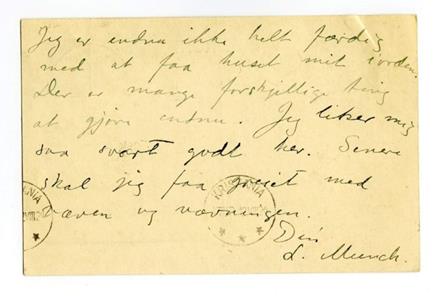 Jeg er endnu ikke helt færdig
med at faa huset mit iorden.
Der er mange forskjellige ting
at gjøre endnu. Jeg liker mig
saa svært godt her. Senere
skal jeg faa greiet med
væven og vævningen.
Din
L. Munch.